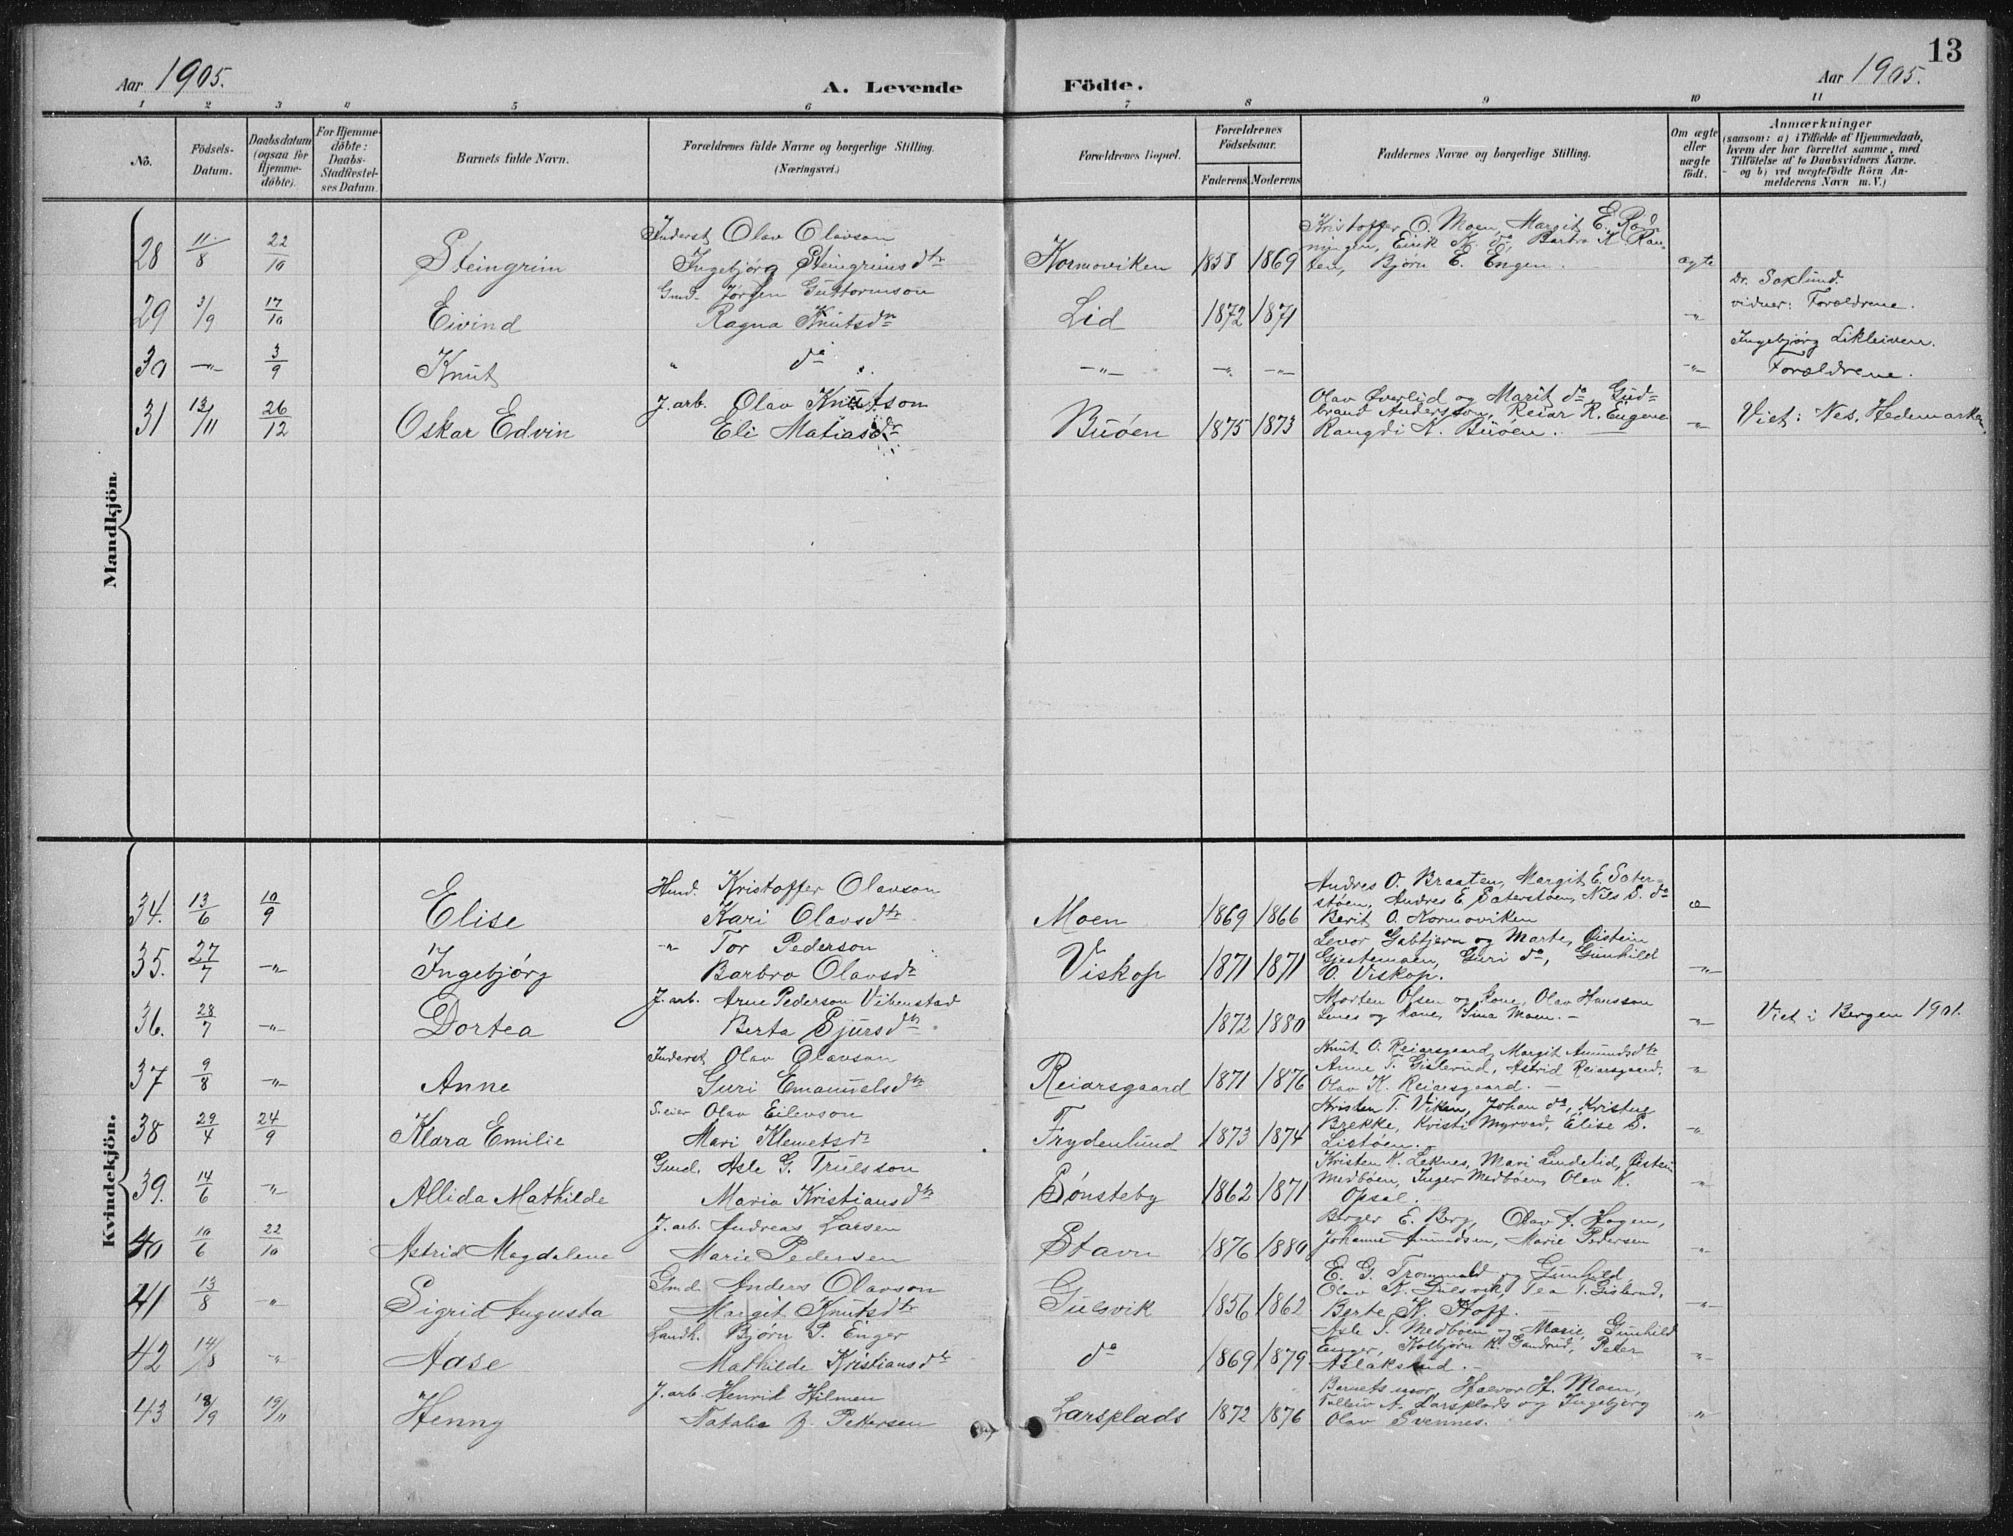 13
Aar 1905. A. Levende Födte. Aar 1905.
1 2 3 4 5 6 7 8 9 10 11
No. Födsels-Datum. Daabsdatum (ogsaa för Hjemmedöbte). For Hjemmedöbte: Daabs-Stadfæstelses Datum. Barnets fulde Navn. Forældrenes fulde Navne og borgerlige Stilling. (Næringsvei.) Forældrenes Bopæl. Forældrenes Födselsaar. Faderens Moderens Faddernes Navne og borgerlige Stilling. Om ægte eller uægte födt. Anmærkninger (saasom: a) i Tilfælde af Hjemmedaab, hvem der har forrettet samme, med Tilföielse af to Daabsvidners Navne. og b) ved uægtefödte Börn Anmelderens Navn m. V.)
Mandkjön.
28 11/8 22/10 Steingrim Inderst Olav Olavson
Ingebjørg Steingrimsdtr Kormoviken 1858 1869 Kristoffer O. Moen, Margit E. Røn-
ningen, Eirik K. do, Barbro K. Raa-
ten, Bjørn E. Engen. ægte
29 3/9 17/10 Eivind Gmd. Jørgen Guttormson
Ragna Knutsdtr Lid 1872 1871 „ Dr. Saxlund.
vidner: Forældrene.
30 -„- 3/9 Knut „ do -„- -„- -„- -„- Ingebjørg Likleiven.
Forældrene.
31 13/11 26/12 Oskar Edvin J. arb. Olav Knutson
Eli Matiasdtr Buøen 1875 1873 Olav Øverlid og Marit do, Gud-
brand Andersson, Reiar R. Engene
Rangdi K. Buøen. -„- Viet i Nes, Hedemarken
Kvindekjön.
34. 13/6 10/9 Elise Husd. Kristoffer Olavson
Kari Olavsdtr Moen 1869 1866 Andres O. Braaten, Margit E. Sater-
støen, Andres E. Saterstøen, Nils S. do
Berit O. Kormoviken æ
35. 27/7 -„- Ingebjørg -„- Tor Pederson
Barbro Olavsdtr Viskop 1871 1871 Levor Gabtjern og Marte, Øistein
Gjestemoen, Guri do, Gunhild
O. Viskop. -„-
36. 28/7 -„- Dortea J. arb. Arne Pederson Vibenstad
Berta Sjursdtr 1872 1880 Morten Olsen og Kone, Olav Hansson
Lenes og Kone, Sina Moen. -„- Viet i Bergen 1901.
37 9/8 -„- Anne Inderst Olav Olavson
Guri Emanuelsdtr Reiarsgaard 1871 1876 Knut O. Reiarsgaard, Margit Amundsdtr
Anne T. Gislerud, Astrid Reiarsgaard,
Olav K. Reiarsgaard. „
38 29/4 24/9 Klara Emilie S.eier Olav Eilevson
Mari Klemetsdtr Frydenlund 1873 1874 Kristen T. Viken, Johan do, Kristine
Brekke, Kristi Myrvad, Elise S.
Listøen. -„-
39. 14/6 -„- Allida Mathilde Gmd. Asle G. Trulsson
Maria Kristiansdtr Sønsteby 1862 1871 Kristen K. Leknes, Mari Lindelid, Øistein
Medbøen, Inger Medbøen, Olav K.
Opsal. -„-
40 10/6 22/10 Astrid Magdalene J. arb. Andreas Larsen
Marie Pedersen Stavn 1876 1880 Berger E. Berg, Olav A. Hagen,
Johanne Amundsen, Marie Pedersen -„-
41 13/8 -„- Sigrid Augusta Gmd Anders Olavson
Margit Knutsdtr Gulsvik 1856 1862 E. G. Trommald og Gunhild
Olav K. Gulsvik, Tea T. Gislerud,
Berte K. Hoff. -„-
42 14/8 -„- Aase Landh. Bjørn P. Enger
Mathilde Kristiansdtr do 1869 1879 Asle T. Medbøen og Marie, Gunhild
Enger, Kolbjørn K. Gandrud, Peter
Aslaksrud. -„-
43 18/9 19/11 Henny J. arb. Henrik Hilmen
Natalie Pettersen Larsplads 1872 1876 Barnets mor, Halvor H. Moen,
Tolleiv A. Larsplads og Ingebjørg
Olav Svennes. „